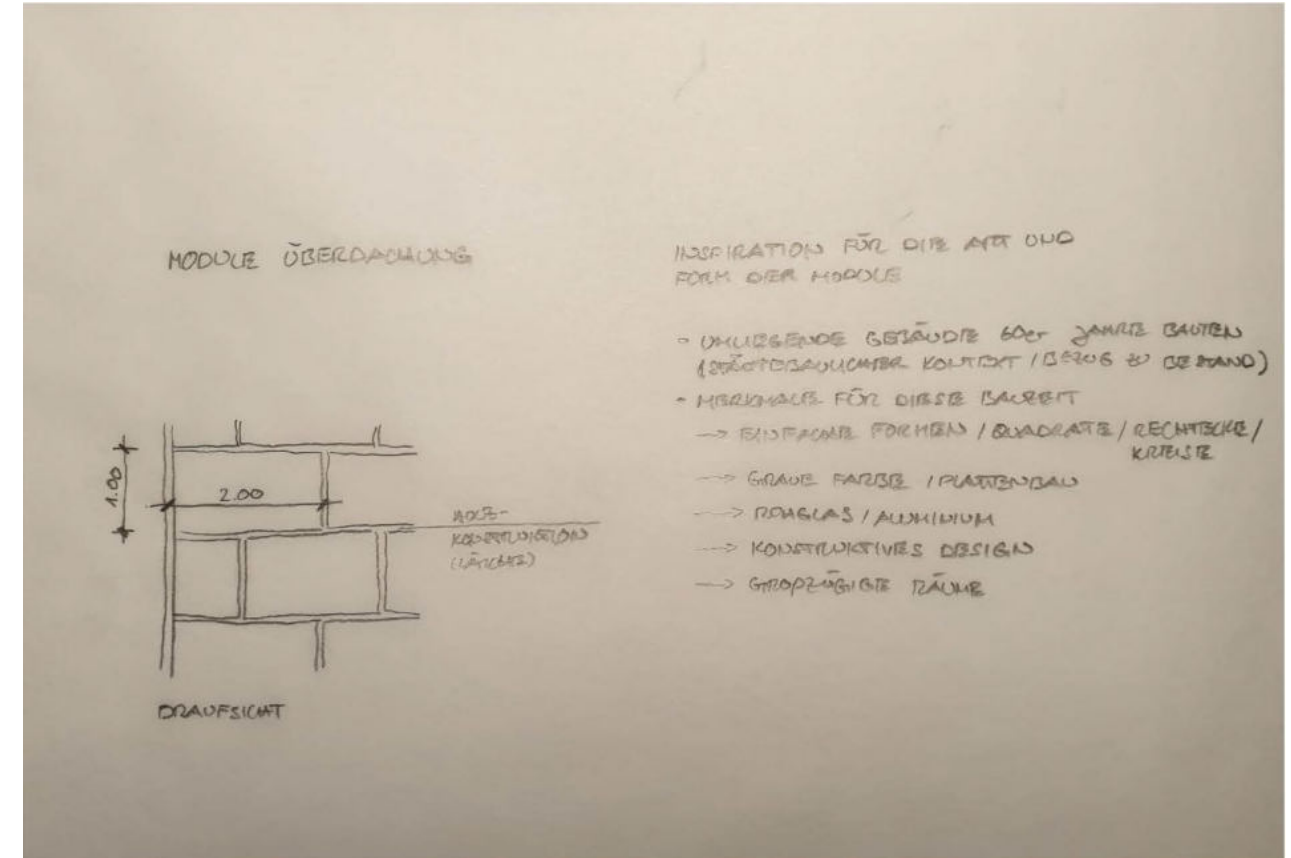 MODULE ÜBERDACHUNG
1.00
2.00
HOLZ-
KONSTRUKTION
(LÄRCHE)
DRAUFSICHT
INSPIRATION FÜR DIE ART UND
FORM DER MODULE
- UMLIEGENDE GEBÄUDE 60er JAHRE BAUTEN
(STÄDTEBAULICHER KONTEXT / BEZUG ZU BESTAND)
- MERKMALE FÜR DIESE BAUZEIT
--> EINFACHE FORMEN / QUADRATE / RECHTECKE /
KREISE
--> GRAUE FARBE / PLATTENBAU
--> ROHGLAS / ALUMINIUM
--> KONSTRUKTIVES DESIGN
--> GROßZÜGIGE RÄUME